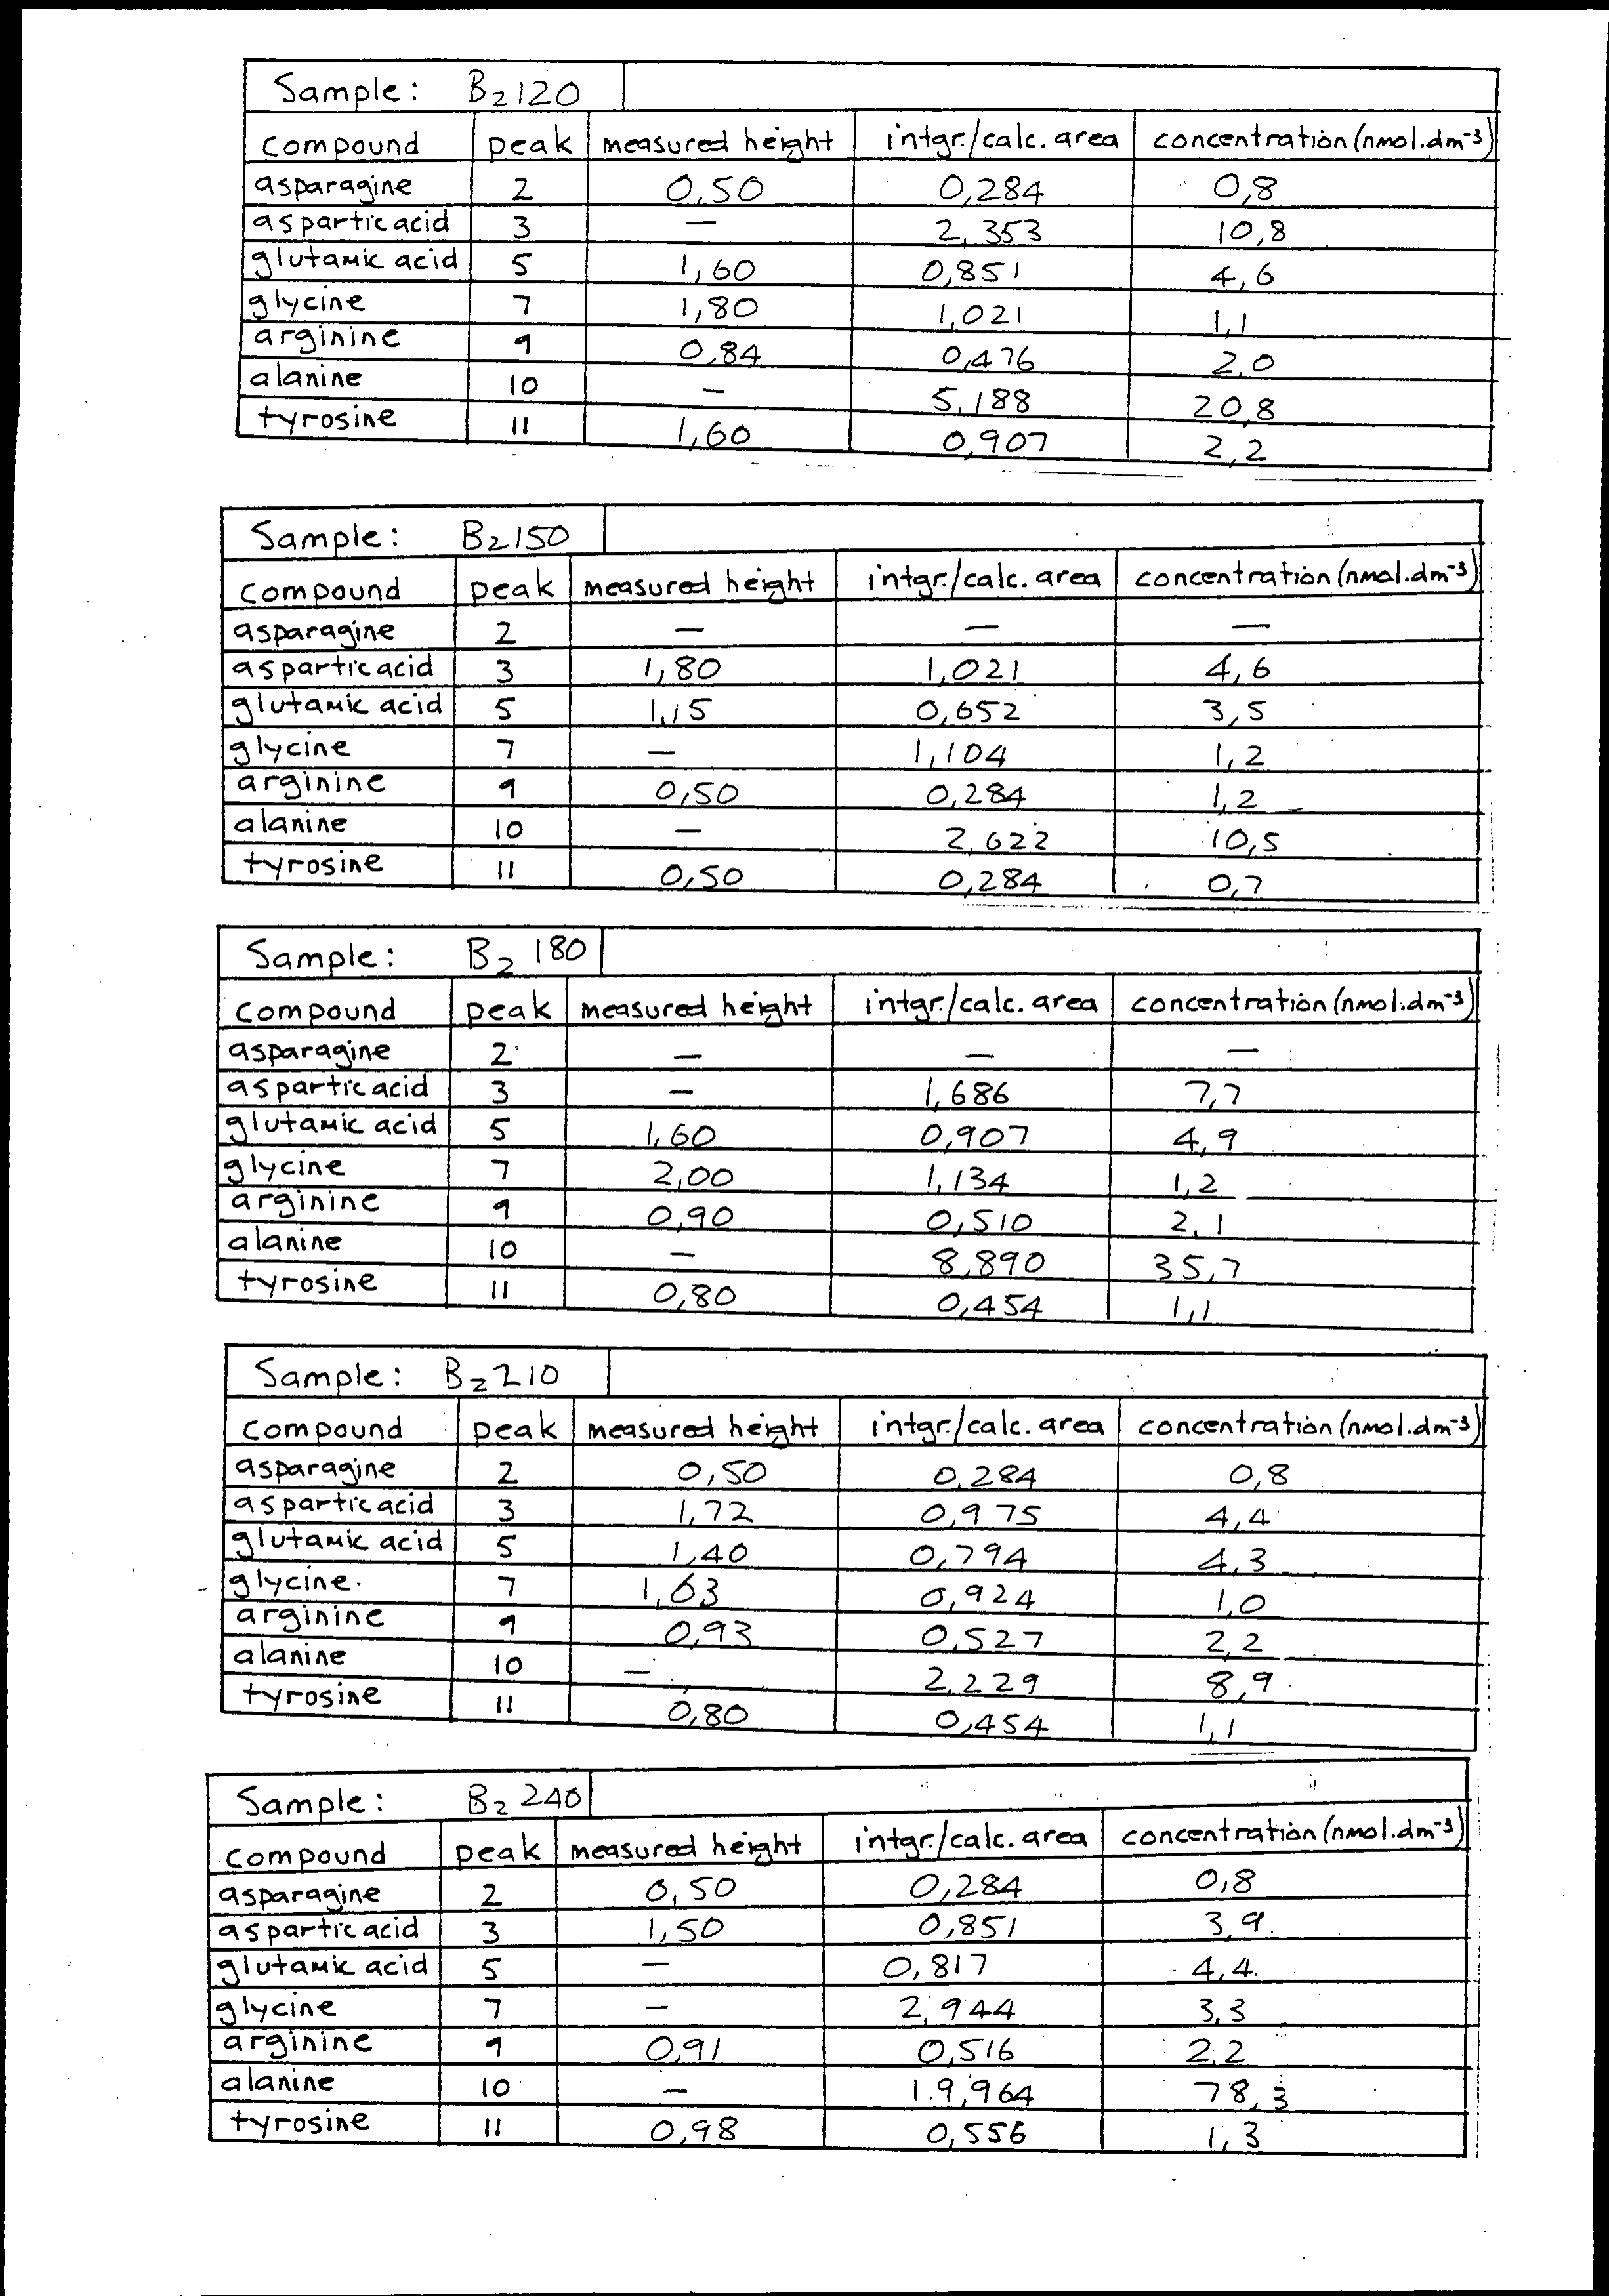 Sample: B₂120
compound peak measured height intgr./calc. area concentration (nmol.dm⁻³)
asparagine 2 0,50 0,284 0,8
aspartic acid 3 — 2,353 10,8
glutamic acid 5 1,60 0,851 4,6
glycine 7 1,80 1,021 1,1
arginine 9 0,84 0,476 2,0
alanine 10 — 5,188 20,8
tyrosine 11 1,60 0,907 2,2
Sample: B₂150
compound peak measured height intgr./calc. area concentration (nmol.dm⁻³)
asparagine 2 — — —
aspartic acid 3 1,80 1,021 4,6
glutamic acid 5 1,15 0,652 3,5
glycine 7 — 1,104 1,2
arginine 9 0,50 0,284 1,2
alanine 10 — 2,622 10,5
tyrosine 11 0,50 0,284 0,7
Sample: B₂ 180
compound peak measured height intgr./calc. area concentration (nmol.dm⁻³)
asparagine 2 — — —
aspartic acid 3 — 1,686 7,7
glutamic acid 5 1,60 0,907 4,9
glycine 7 2,00 1,134 1,2
arginine 9 0,90 0,510 2,1
alanine 10 — 8,890 35,7
tyrosine 11 0,80 0,454 1,1
Sample: B₂210
compound peak measured height intgr./calc. area concentration (nmol.dm⁻³)
asparagine 2 0,50 0,284 0,8
aspartic acid 3 1,72 0,975 4,4
glutamic acid 5 1,40 0,794 4,3
glycine 7 1,63 0,924 1,0
arginine 9 0,93 0,527 2,2
alanine 10 — 2,229 8,9
tyrosine 11 0,80 0,454 1,1
Sample: B₂ 240
compound peak measured height intgr./calc. area concentration (nmol.dm⁻³)
asparagine 2 0,50 0,284 0,8
aspartic acid 3 1,50 0,851 3,9
glutamic acid 5 — 0,817 4,4
glycine 7 — 2,944 3,3
arginine 9 0,91 0,516 2,2
alanine 10 — 19,964 78,3
tyrosine 11 0,98 0,556 1,3